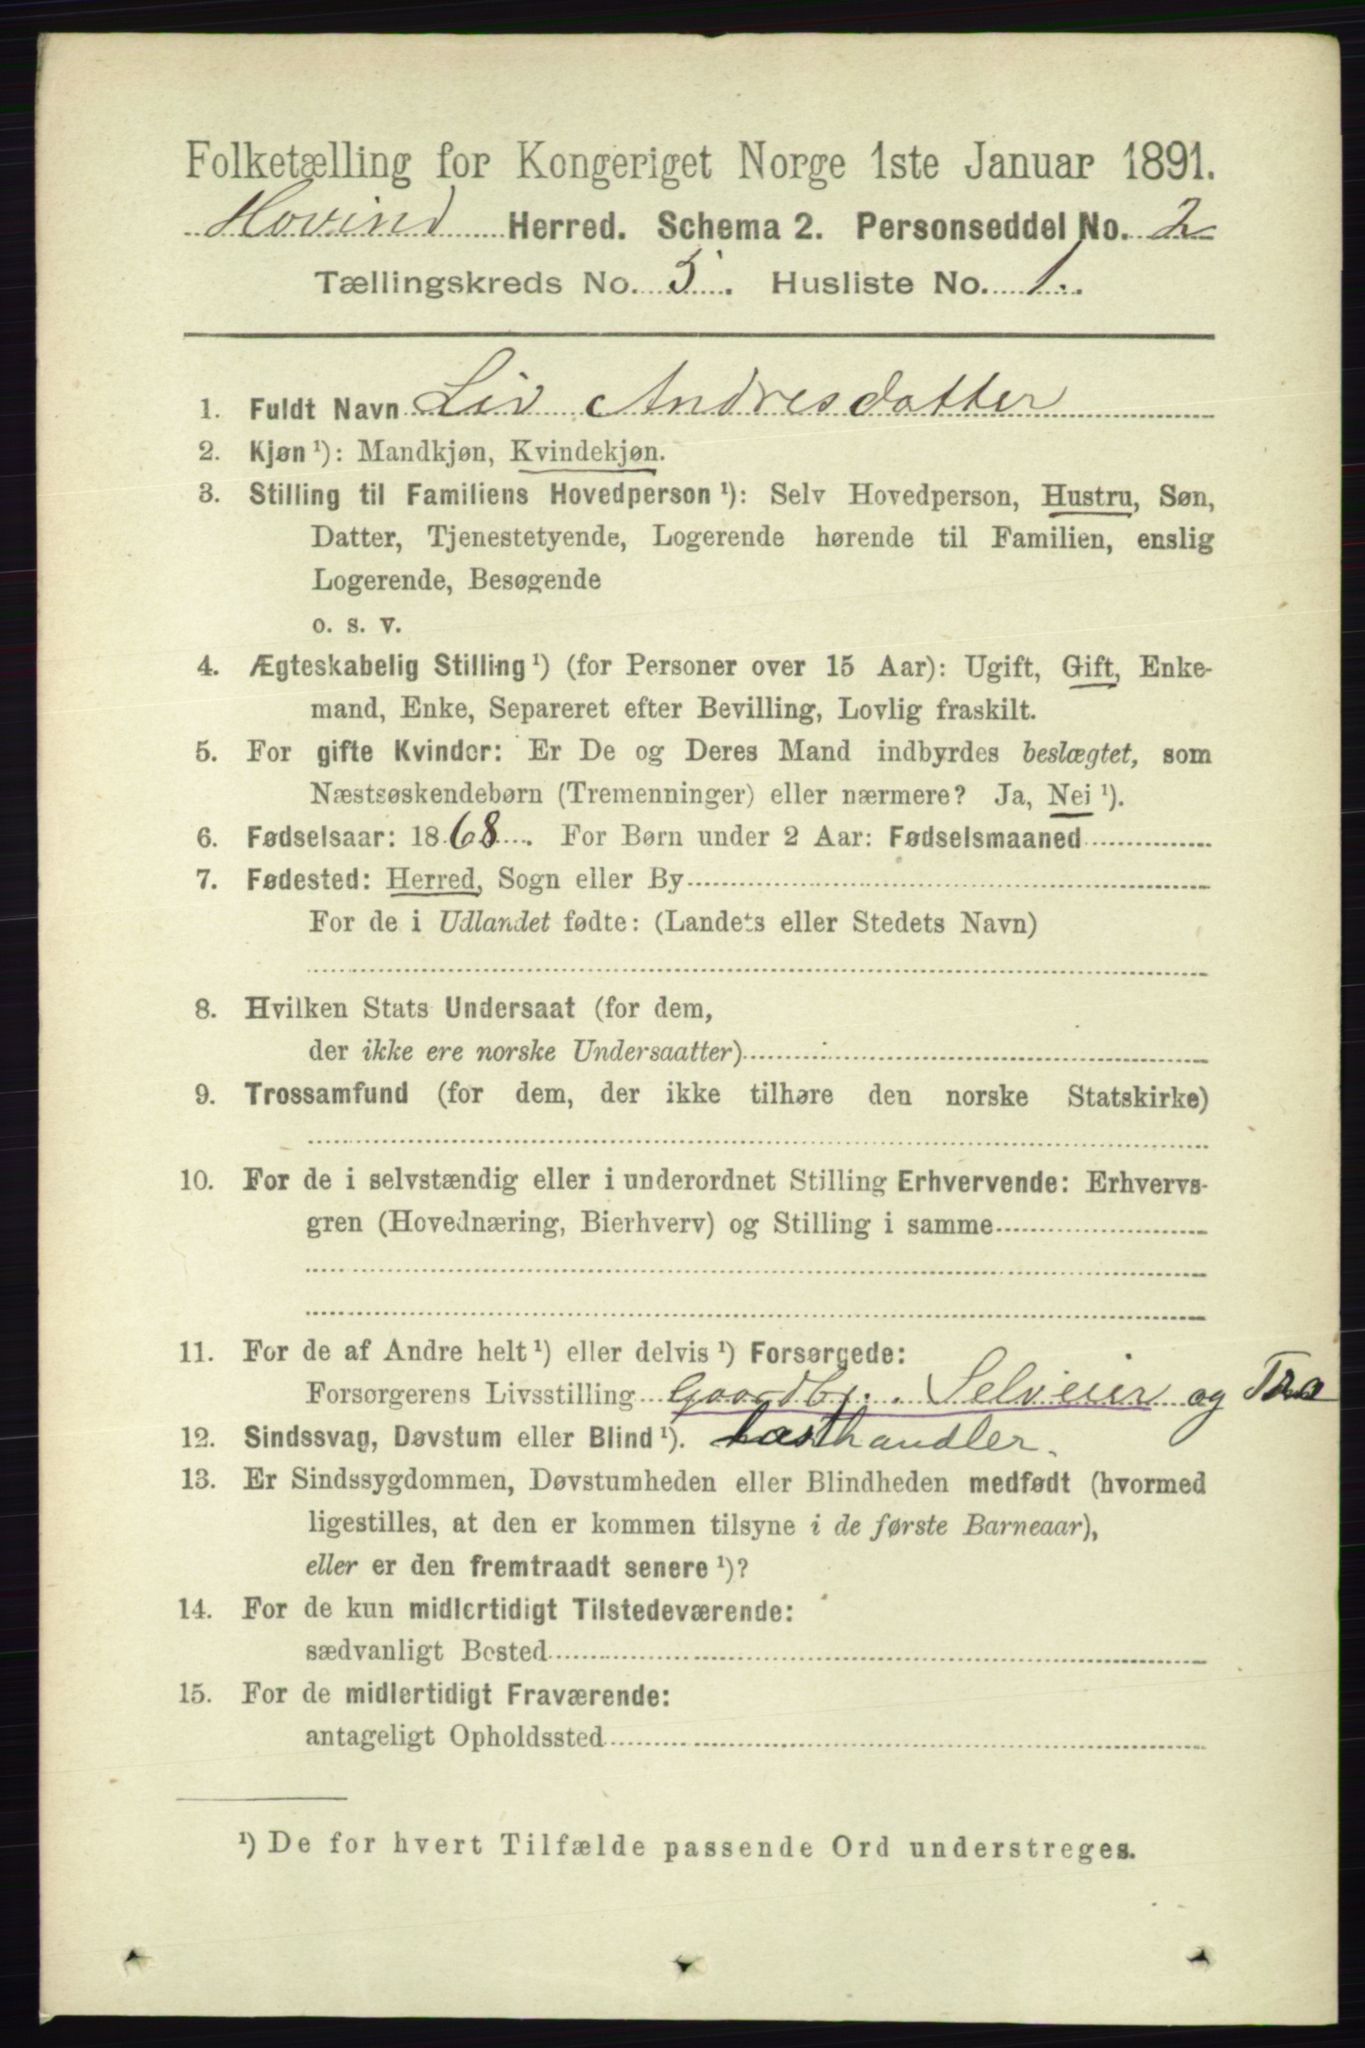 Folketælling for Kongeriget Norge 1ste Januar 1891.
Hovind Herred. Schema 2. Personseddel No. 2
Tællingskreds No. 5. Husliste No. 1.
1. Fuldt Navn Liv Andresdatter
2. Kjøn ¹): Mandkjøn, Kvindekjøn.
3. Stilling til Familiens Hovedperson ¹): Selv Hovedperson, Hustru, Søn,
Datter, Tjenestetyende, Logerende hørende til Familien, enslig
Logerende, Besøgende
o. s. v.
4. Ægteskabelig Stilling ¹) (for Personer over 15 Aar): Ugift, Gift, Enke-
mand, Enke, Separeret efter Bevilling, Lovlig fraskilt.
5. For gifte Kvinder: Er De og Deres Mand indbyrdes beslægtet, som
Næstsøskendebørn (Tremenninger) eller nærmere? Ja, Nei ¹).
6. Fødselsaar: 1868. For Børn under 2 Aar: Fødselsmaaned
7. Fødested: Herred, Sogn eller By
For de i Udlandet fødte: (Landets eller Stedets Navn)
8. Hvilken Stats Undersaat (for dem,
der ikke ere norske Undersaatter)
9. Trossamfund (for dem, der ikke tilhøre den norske Statskirke)
10. For de i selvstændig eller i underordnet Stilling Erhvervende: Erhvervs-
gren (Hovednæring, Bierhverv) og Stilling i samme
11. For de af Andre helt ¹) eller delvis ¹) Forsørgede:
Forsørgerens Livsstilling Gaardbr. Selveier og Tra
12. Sindssvag, Døvstum eller Blind ¹). lasthandler.
13. Er Sindssygdommen, Døvstumheden eller Blindheden medfødt (hvormed
ligestilles, at den er kommen tilsyne i de første Barneaar),
eller er den fremtraadt senere ¹)?
14. For de kun midlertidigt Tilstedeværende:
sædvanligt Bosted
15. For de midlertidigt Fraværende:
antageligt Opholdssted
¹) De for hvert Tilfælde passende Ord understreges.